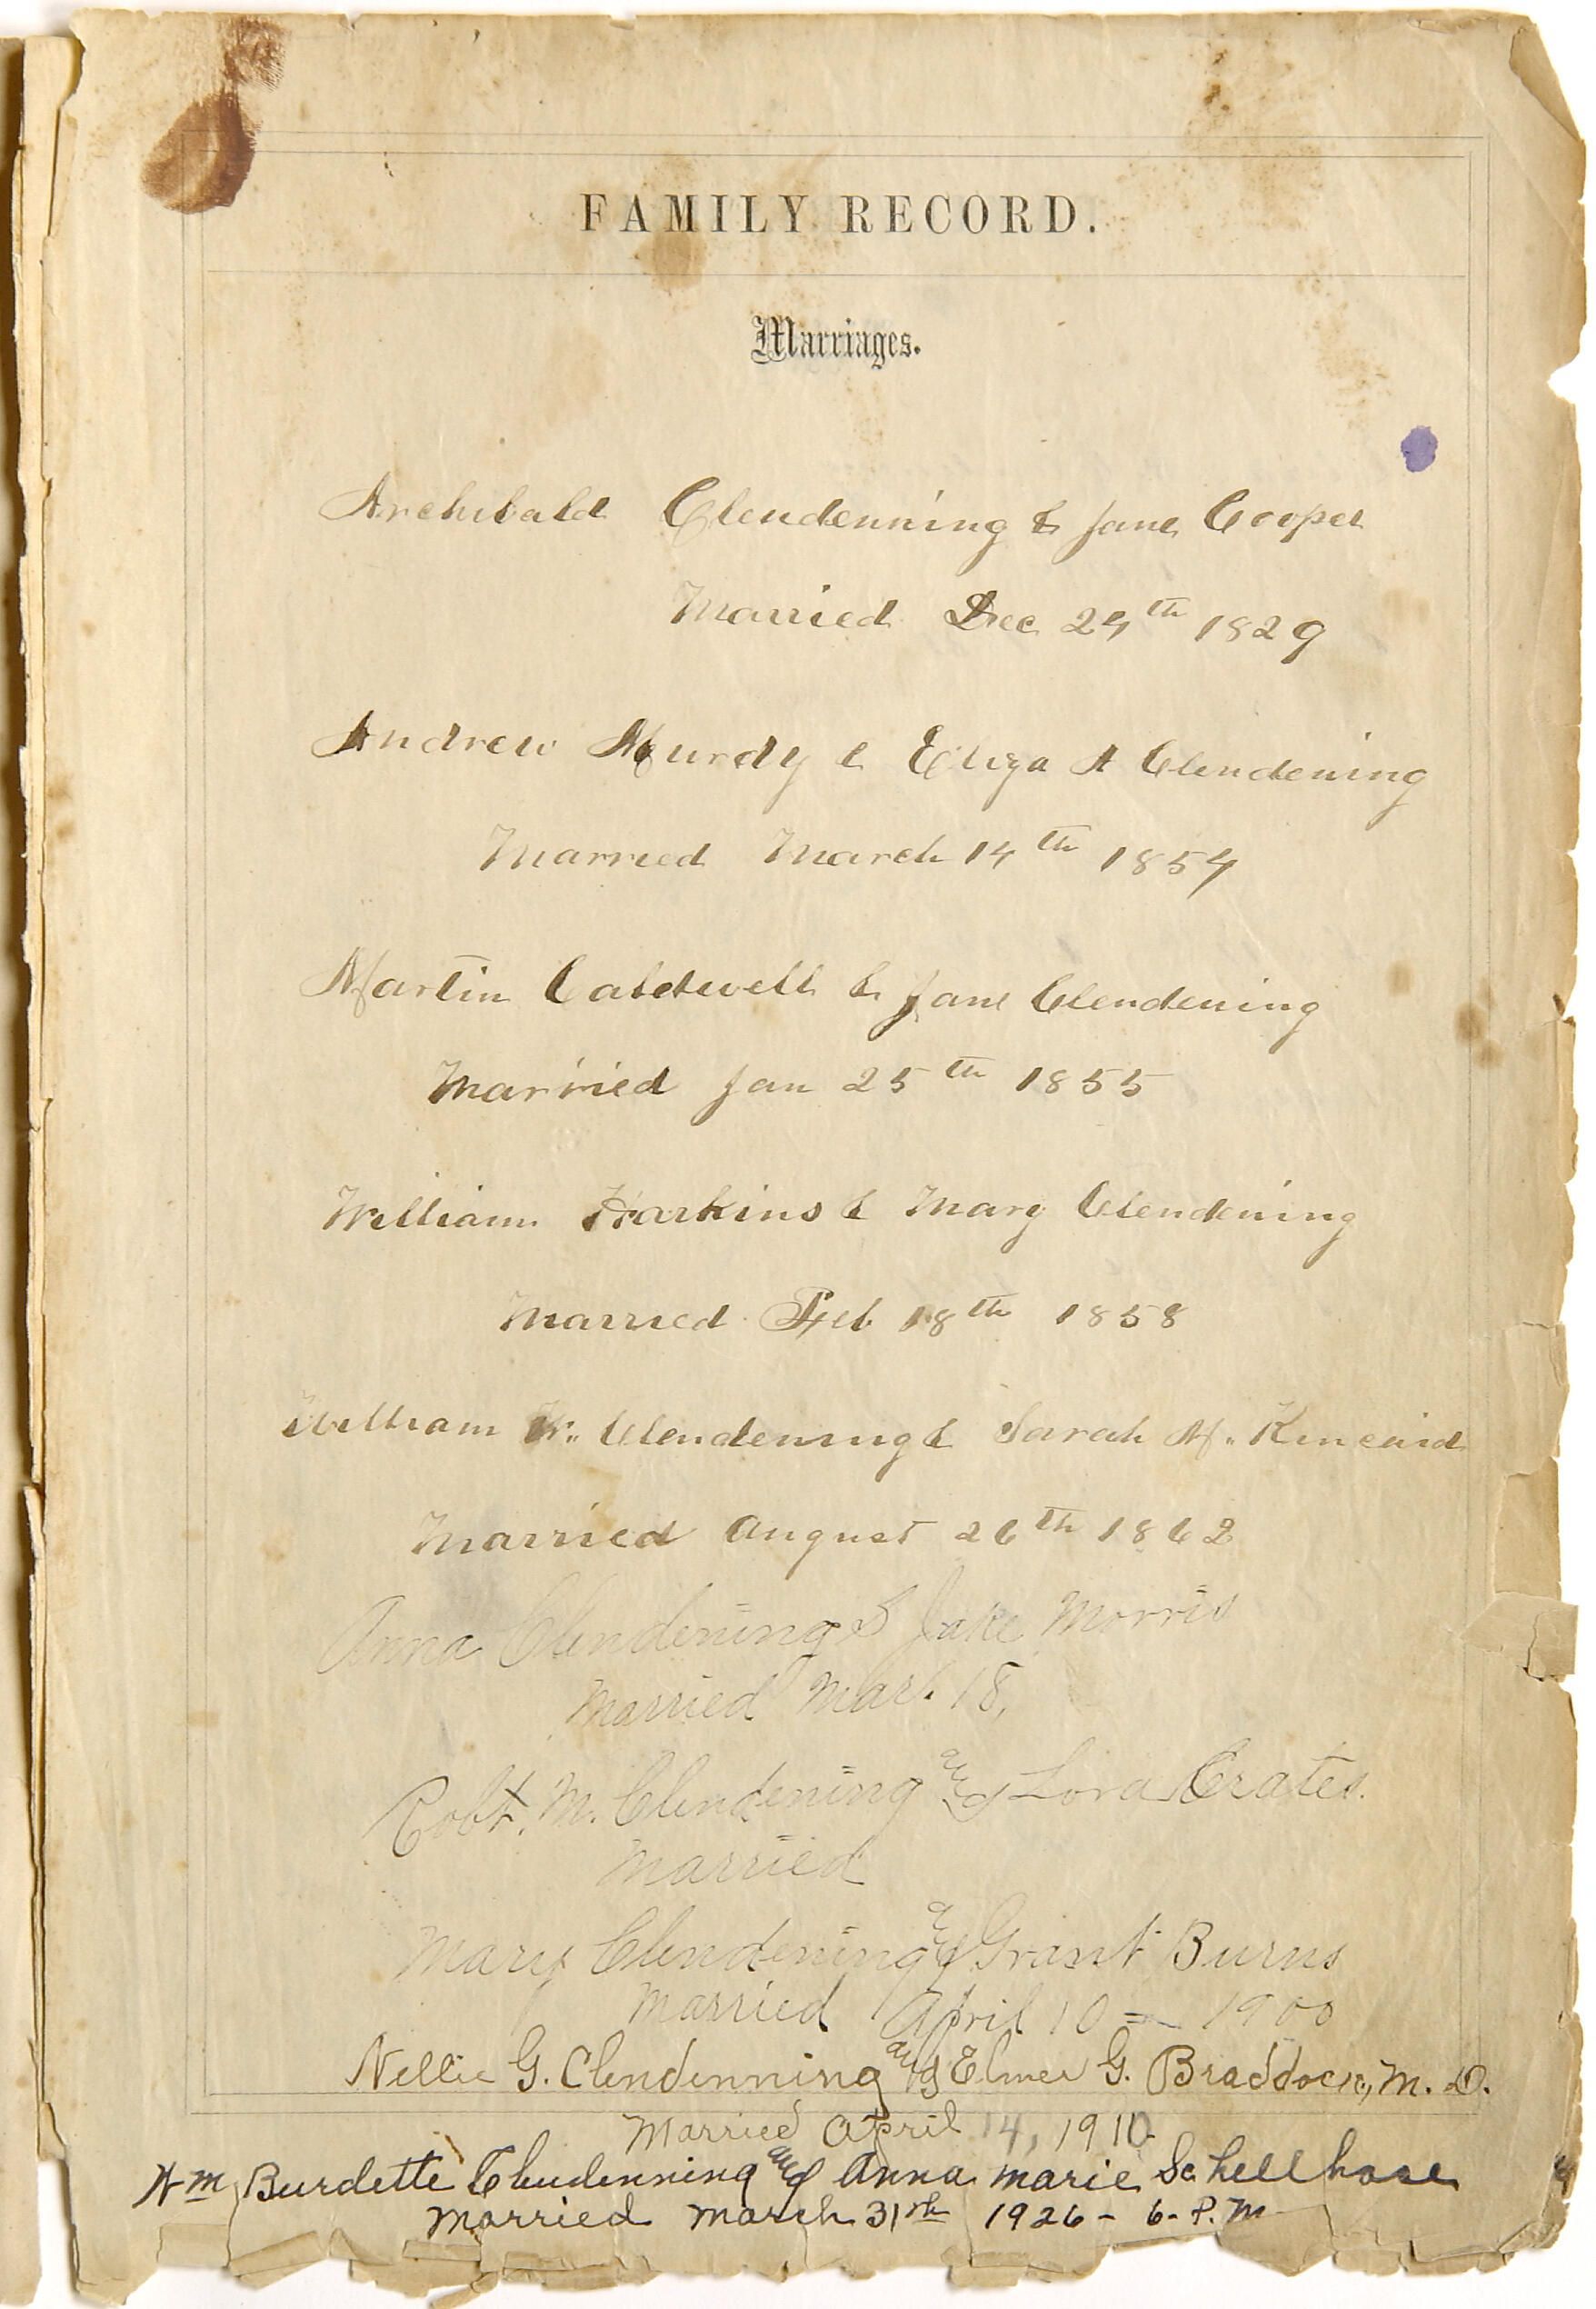 FAMILY RECORD.
Marriages.
Archibald Clendenning & Jane Cooper
Married Dec 24th 1829
Andrew Murdy & Eliza A Clendening
Married March 14th 1854
Martin Caldwell & Jane Clendening
Married Jan 25th 1855
William Harkins & Mary Clendening
Married Feb 18th 1858
William W. Clendening & Sarah M. Kincaid
Married August 26th 1862
Anna Clendening & Jake Morris
Married Mar. 18,
Robt. M. Clendening and Lora Crates.
Married
Mary Clendening and Grant Burns
Married April 10 - 1900
Nellie G. Clendenning and Elmer G. Braddock, M. D.
Married April 14, 1910
Wm Burdette Clendenning and Anna Marie Schellhase
Married March 31st 1926 - 6 - P. M